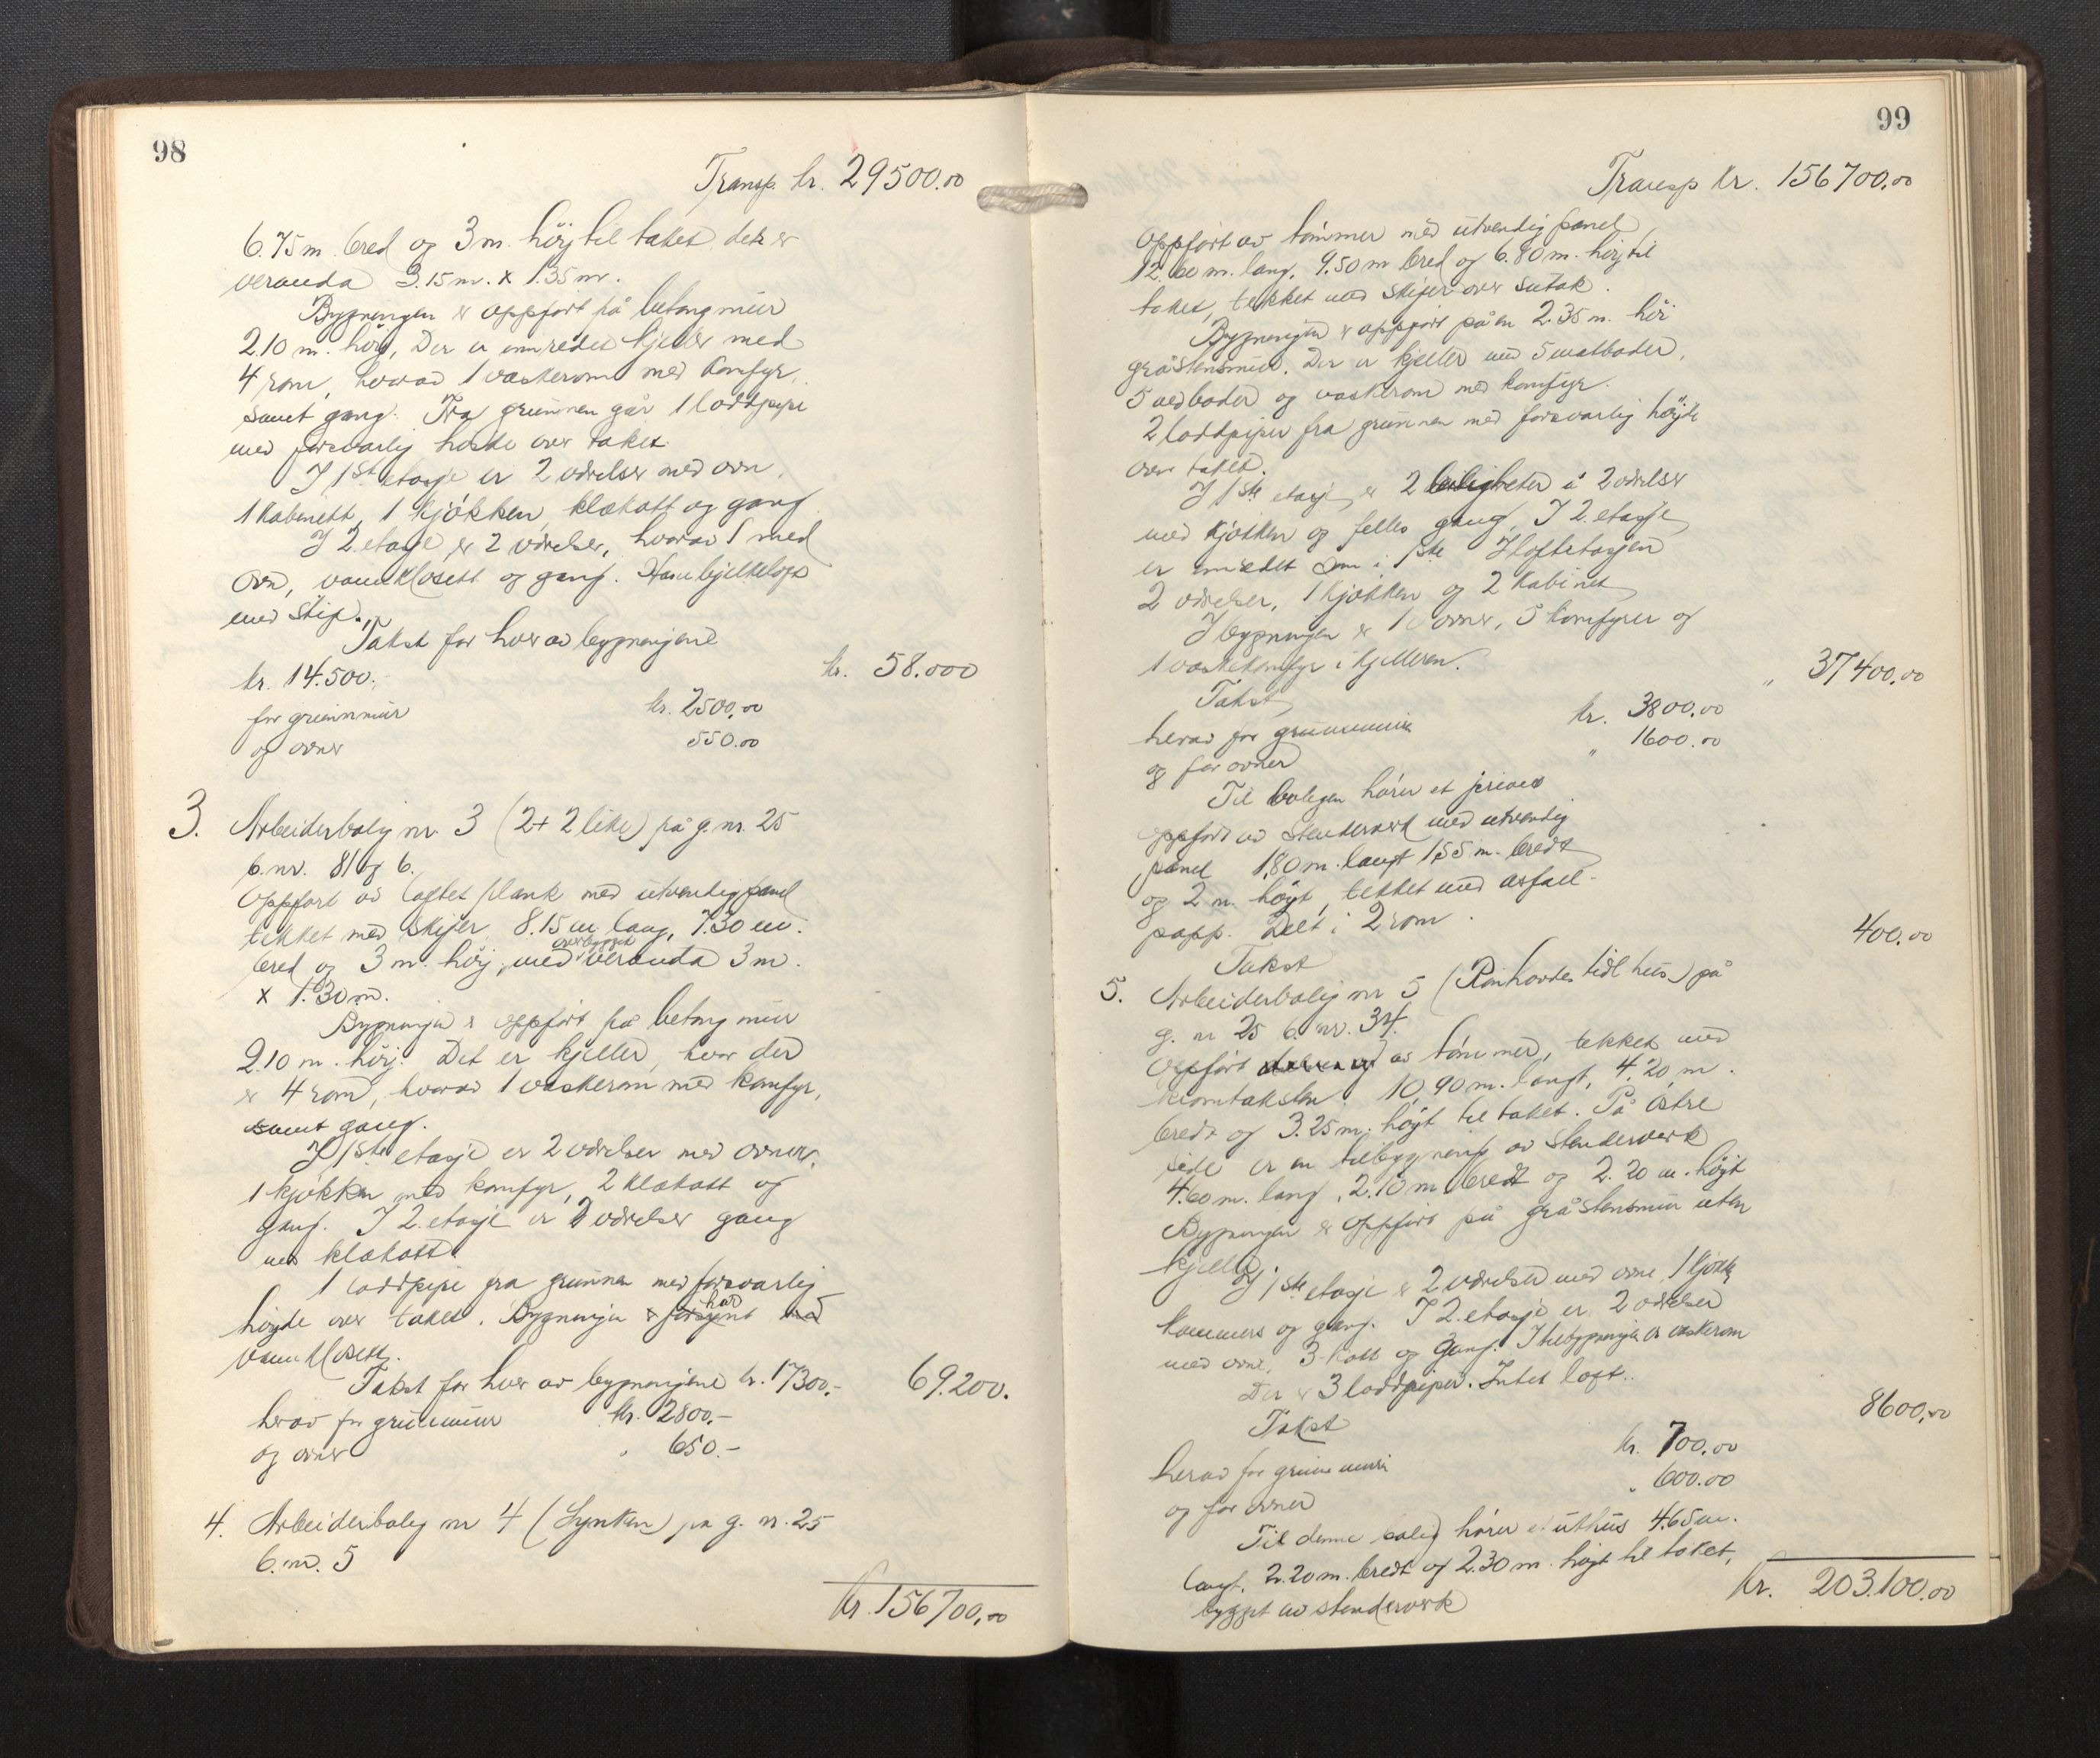 98
Transp. kr. 29500.00
6.75 m bred og 3 m. høj til taket, det er
veranda 3.15 m. x 1.35 m.
Bygningen er oppført på betongmur
2.10 m. høj, Der er innredet kjeller med
4 rom, hvorav 1 vaskerom med komfyr,
samt gang. Fra grunnen går 1 loddpipe
med forsvarlig høide over taket.
I 1ste etasje er 2 værelser med ovn,
1 kabinett, 1 kjøkken, klækott og gang
I 2 etasje er 2 værelser, hvorav 1 med
ovn, vannklosett og gang. Hanebjelkeloft
med skip.
Takst for hver av bygningene
kr. 14.500.- kr. 58.000
for grunnmur kr. 2500,00
og ovner 550.00
3. Arbeiderbolig nr. 3 (2 + 2 like) på g. nr. 25
b. nr. 81 og 6.
Oppført av laftet plank med utvendig panel
tekket med skifer 8.15 m lang, 7.30 m.
bred og 3 m. høj, med overbygget veranda 3 m.
x 1.30 m.
Bygningen er oppført på betong mur
2.10 m. høj. Det er kjeller, hvor der
er 4 rom, hvorav 1 vaskerom med komfyr,
samt gang.
I 1ste etasje er 2 værelser med ovner,
1 kjøkken med komfyr, 2 klækott og
gang. I 2. etasje er 2 værelser gang
med klækott.
1 loddpipe fra grunnen med forsvarlig
høyde over taket. Bygningen er forsynt med har
vannklosett.
Takst for hver av bygningene kr. 17300,- 69.200.
herav for grunnmur kr. 2800,-
og ovner " 650.-
4. Arbeiderbolig nr 4 (Lynken) på g. nr. 25
b. nr. 5
kr. 156700,00
99
Transp kr. 156700,00
Oppført av tømmer med utvendig panel
12.60 m. lang, 9.50 m bred og 6.80 m. høj til
taket, tekket med skifer over sutak.
Bygningen er oppført på en 2.35 m. høi
gråstensmur. Der er kjeller med 5 matboder,
5 vedboder og vaskerom med komfyr.
2 loddpiper fra grunnen med forsvarlig høyde
over taket.
I 1ste etasje er 2 leiligheter à 2 værelser
med kjøkken og felles gang, I 2. etasje
er innredet som i 1ste I loftetasjen
2 værelser, 1 kjøkken og 2 kabinet
I bygningen er 10 ovner, 5 komfyrer og
1 vaskekomfyr i kjelleren.
Takst " 37400,00
herav for grunnmur kr. 3800,00
og for ovner " 1600.00
Til boligen hører et privet
oppført av stenderverk med utvendig
panel 1,80 m. langt 1,55 m. bredt
og 2 m. høyt, tekket med asfalt-
papp. Delt i 2 rom.
Takst 400.00
5. Arbeiderbolig nr 5 (Ranhovdes tidl hus) på
g. nr 25 b. nr. 34.
Oppført av tømmer, tekket med
kromtaksten. 10,90 m. langt, 4,20 m.
bredt og 3.25 m. høyt til taket. På østre
side er en tilbygning av stenderverk
4.60 m. lang, 2.10 m bredt og 2.20 m. høyt
Bygningen er oppført på gråstensmur uten
kjeller.
I 1ste etasje er 2 værelser med ovne, 1 kjøkk
kammers og gang. I 2 etasje er 2 værelser
med ovne, 3 kott og gang. I tilbygningen er vaskerom
Der er 3 loddpiper. Intet loft.
Takst 8600,00
herav for grunnmur kr. 700,00
og for ovner " 600.00
Til denne bolig hører et uthus 4.65 m.
langt, 2.20 m. bredt og 2.30 m. høyt til taket,
bygget av stenderverk
kr. 203.100.00